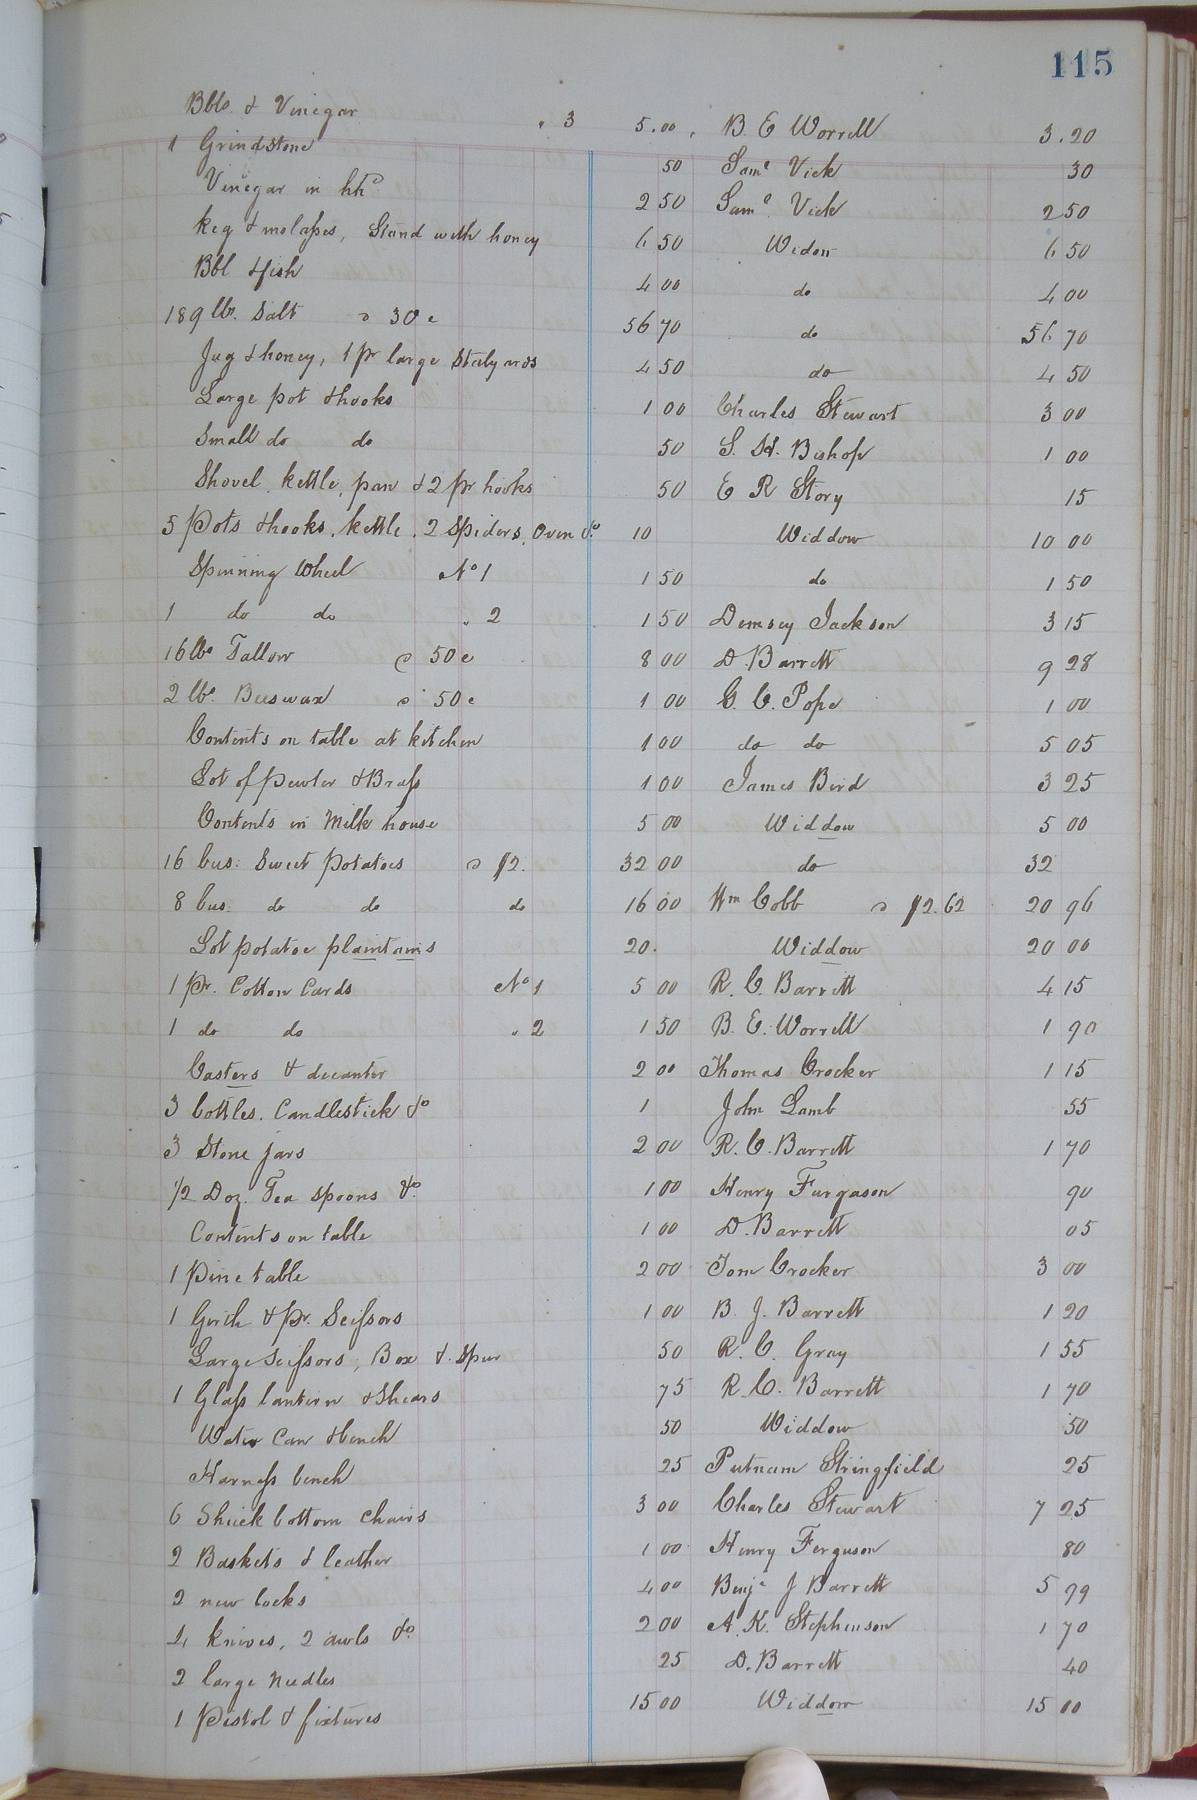 115
Bbls & Vinegar " 3 5.00 B. E Worrell 3.20
1 Grindstone 50 Saml Vick 30
Vinegar in hhd 2 50 Saml Vick 2 50
keg & molasses, Stand with honey 6 50 Widow 6 50
Bbl & fish 4 00 do 4 00
189 lbs. Salt @ 30 c 56 70 do 56 70
Jug & honey, 1 pr large Stilyards 4 50 do 4 50
Large pot & hooks 1 00 Charles Stewart 3 00
Small do do 50 S. H. Bishop 1 00
Shovel, kettle, pan & 2 pr hooks 50 E R Story 15
5 Pots & hooks, kettle, 2 Spiders, Oven &c 10 Widdow 10 00
Spinning Wheel No 1 1 50 do 1 50
1 do do " 2 1 50 Demsey Jackson 3 15
16 lbs Tallow @ 50 c 8 00 D. Barrett 9 28
2 lbs. Beeswax @ 50 c 1 00 G. C. Pope 1 00
Contents on table at kitchen 1 00 do do 5 05
Lot of pewter & Brass 1 00 James Bird 3 25
Contents in Milk house 5 00 Widdow 5 00
16 bus: Sweet Potatoes @ $2. 32 00 do 32
8 bus. do do do 16 00 Wm Cobb @ $2.62 20 96
Lot potatoe plaintains 20. Widdow 20 00
1 Pr. Cotton Cards No 1 5 00 R. C. Barrett 4 15
1 do do " 2 1 50 B. E. Worrell 1 90
Casters & decanter 2 00 Thomas Crocker 1 15
3 bottles, Candlestick &c 1 John Lamb 55
3 Stone jars 2 00 R. C. Barrett 1 70
1/2 Doz. Tea spoons &c. 1 00 Henry Furgason 90
Contents on table 1 00 D. Barrett 05
1 Pine table 2 00 Tom Crocker 3 00
1 Girth & Pr. Scissors 1 00 B. J. Barrett 1 20
Large Scissors, Box & Spur 50 R. C. Gray 1 55
1 Glass lantern & Shears 75 R. C. Barrett 1 70
Water Can & bench 50 Widdow 50
Harness bench 25 Putnam Stringfield 25
6 Shuck bottom chairs 3 00 Charles Stewart 7 25
2 Baskets & leather 1 00 Henry Ferguson 80
2 new locks 4 00 Benja J Barrett 5 99
4 knives, 2 awls &c. 2 00 A. K. Stephenson 1 70
2 large needles 25 D. Barrett 40
1 Pistol & fixtures 15 00 Widdow 15 00